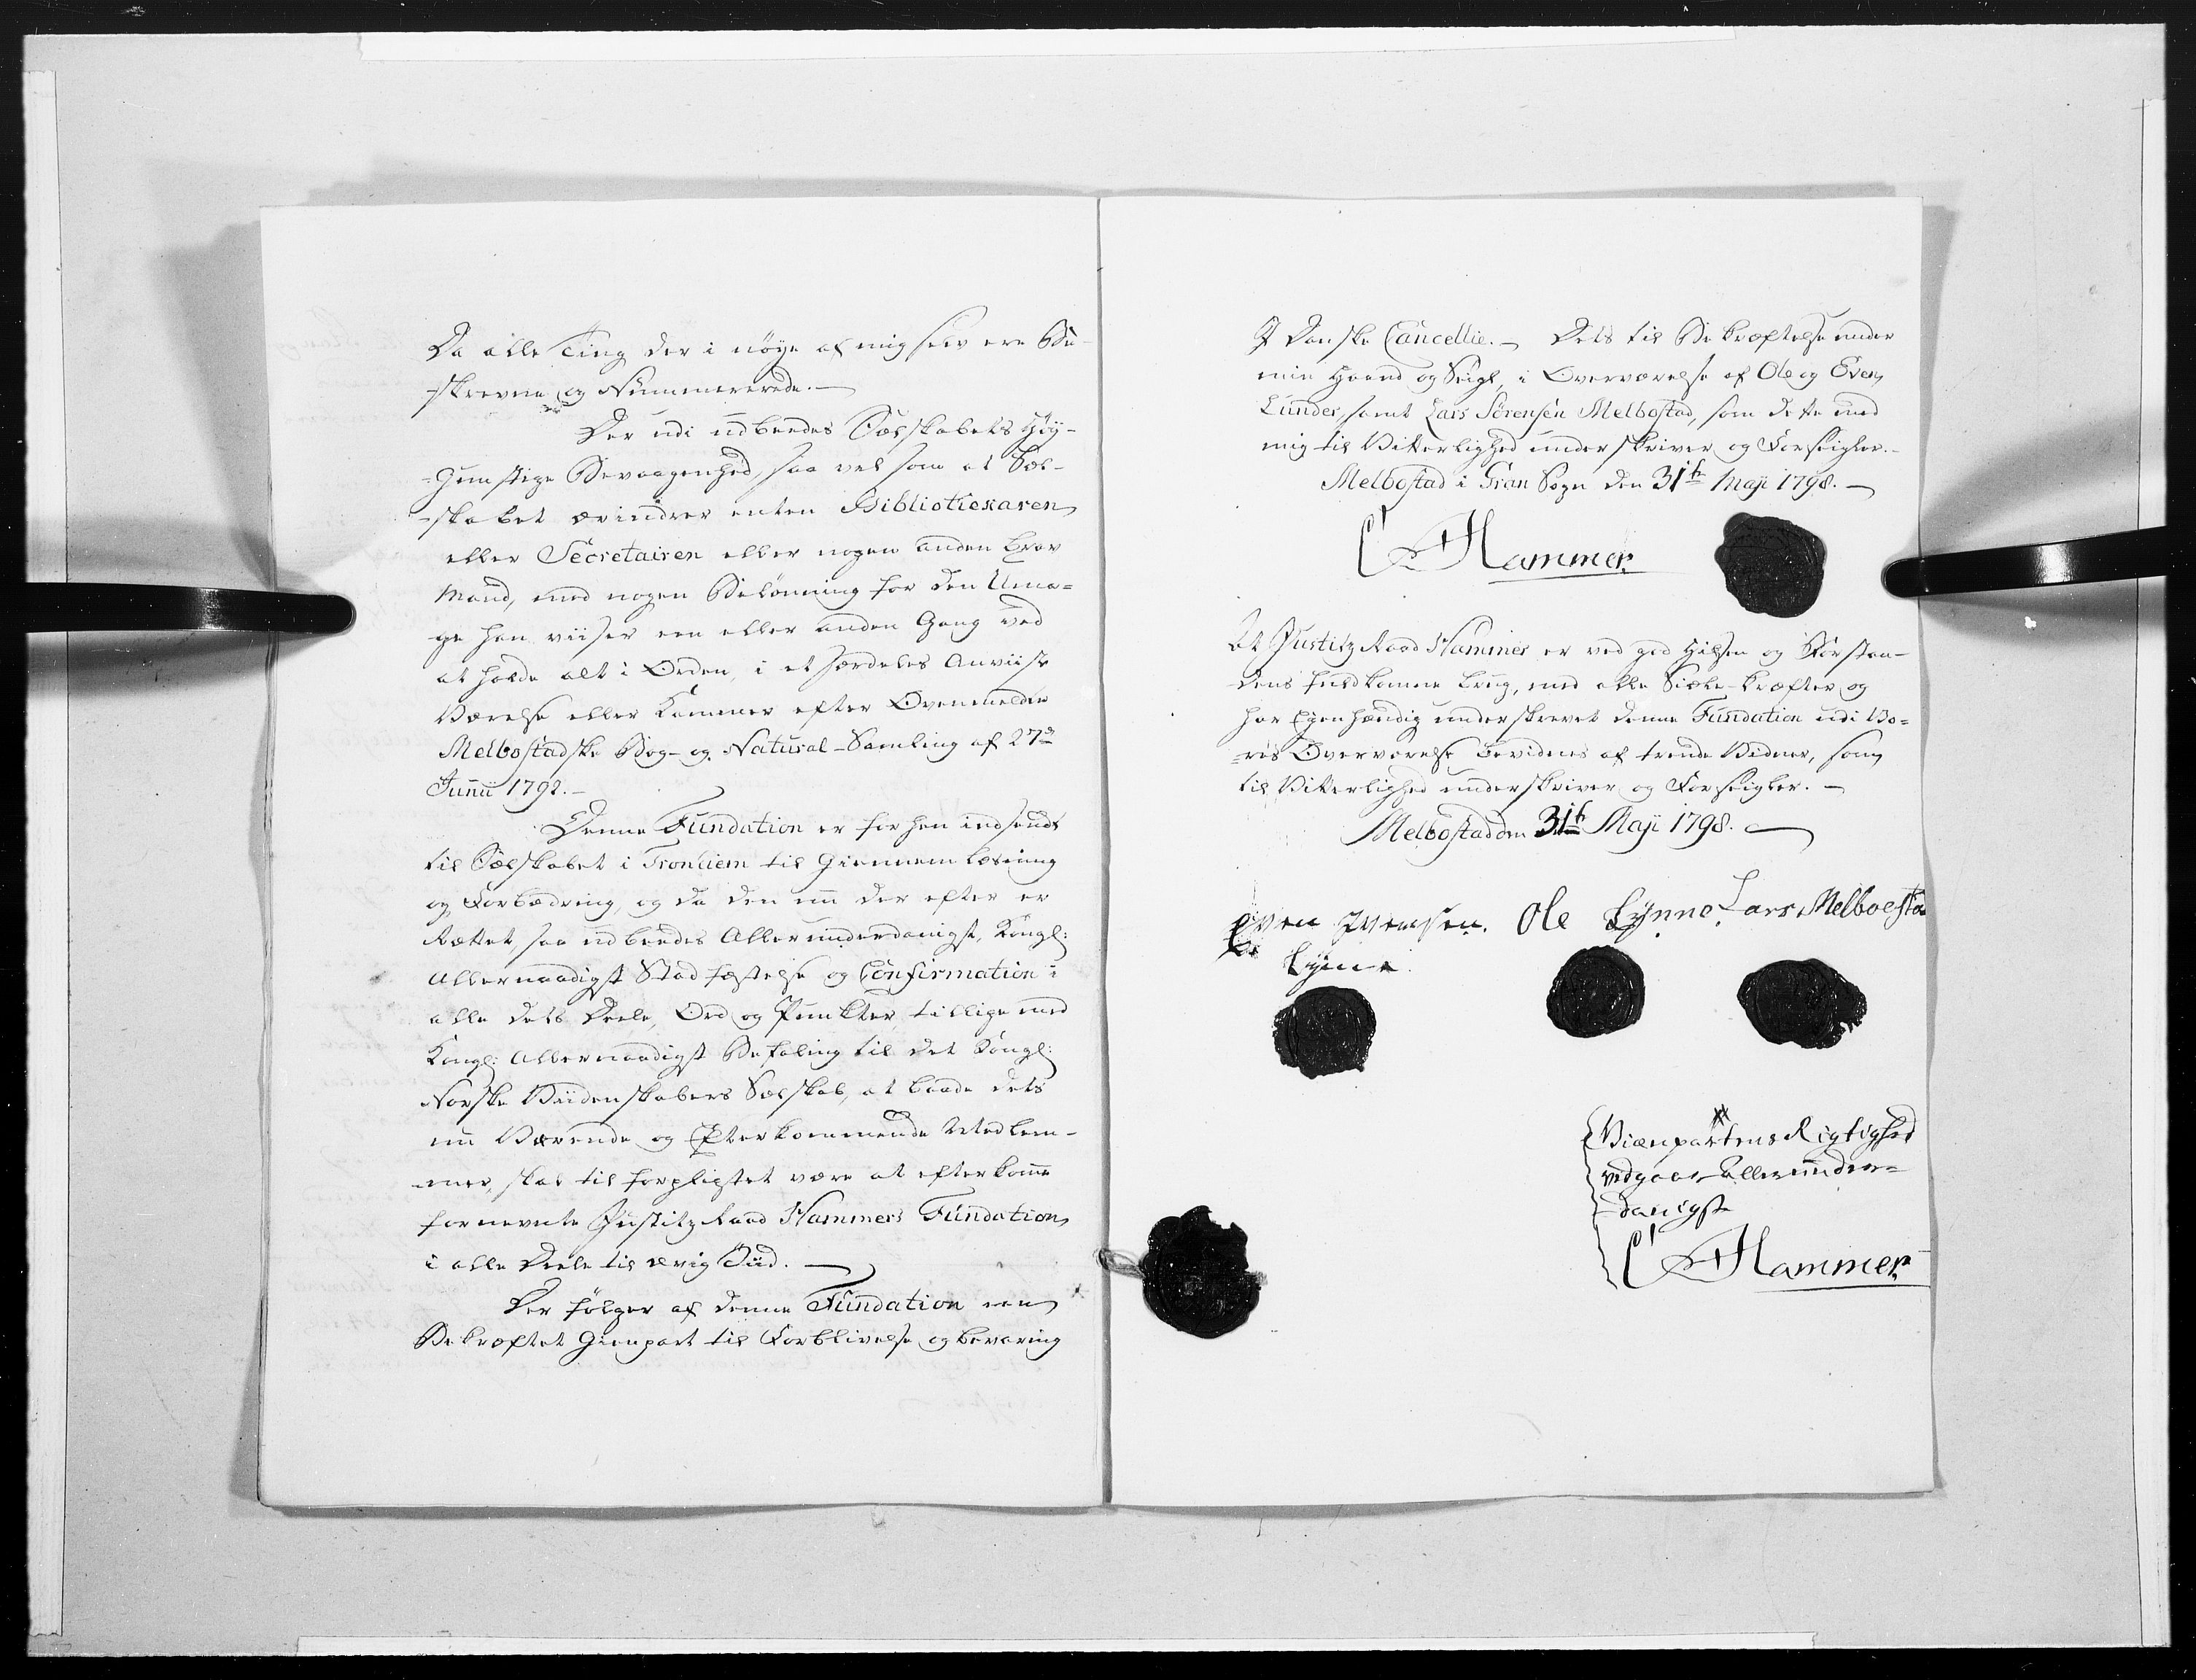 Da alle Ting der i nøye af mig selv ere Be-
-skrevne og Nummererede.-
Der udi udbeedes Sælskabets Høy-
-gunstige Bevaagenhed, saa vel som at Sæl-
-skabet ærindrer enten Bibliotiexaren
eller Secretairen eller nogen anden brav
Mand, med nogen Belønning for den Uma=
ge han viiser een eller anden Gang ved
at holde alt i Orden, i et særdeles Anviist
Værelse eller Kammer efter Ovenmeldte
Melbostadske Bog- og Natural-Samling af 27de
Junii 1792.-
Denne Fundation er for hen indsendt
til Sælskabet i Tronhiem til Giennem læsning
og Forbædring, og da den nu der efter er
Rættet, saa udbeedes Allerunderdanigst, Kongl:
Allernaadigst Stadfæstelse og Confirmation i
alle dets Deele, Ord og Punkter tillige med
Kongl: Allernaadigst Befaling til det Kongl:
Norske Viidenskabers Sælskab, at baade dets
nu Værende og Efterkommende Medlem-
-mer, skal til forpligtet være at efterkomme
fornevnte Justitz Raad Hammers Fundation
i alle Deele til ævig Tiid.-
Der følger af denne Fundation een
Bekræftet Gienpart til Forblivelse og bevaring
I Danske Cancellie.- Dets til Bekræftelse under
min Haand og Seigl, i Overværelse af Ole og Even
Lunder, samt Lars Sørensen Melbostad, som dette med
mig til Vitterlighed underskriver og Forseigler.-
Melbostad i Gran Sogn den 31te Maji 1798.-
C Hammer
At Justitz Raad Hammer er ved god Hilsen og Forstan-
dens fuldkomne brug, med alle Siæle-kræfter og
har Egenhændig underskrevet denne Fundation udi Vo=
=res Overværelse bevidnes af trende Vidner, som
til Vitterlighed underskriver og Forseigler.-
Melbostad den 31te Maji 1798.
Even Ivensen. Ole Lynne Lars Melboesta
Lynne.
Gienpartens Rigtighed
vedgaaer allerunder=
-danigst
C Hammer